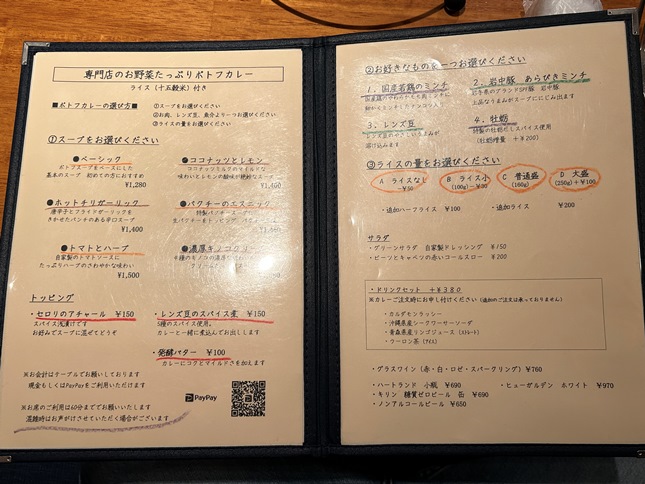 専門店のお野菜たっぷりポトフカレー
ライス（十五穀米）付き
■ポトフカレーの選び方■
①スープをお選びください
②お肉、レンズ豆、魚介より一つお選びください
③ライスの量をお選びください
①スープをお選びください
●ベーシック
ポトフスープをベースにした
基本のスープ 初めての方におすすめ
¥1,280
●ココナッツとレモン
ココナッツミルクのマイルドな
味わいとレモンの酸味が絶妙なスープ
¥1,400
●ホットチリガーリック
唐辛子とフライドガーリックを
きかせたパンチのある辛口スープ
¥1,400
●パクチーのエスニック
特製パクチースープ
¥1,460
●トマトとハーブ
自家製のトマトソースに
たっぷりハーブのさわやかな味わい
¥1,500
●濃厚キノコクリーム
トッピング
・セロリのアチャール ¥150
スパイス浅漬けです
お好みでスープに混ぜてどうぞ
・レンズ豆のスパイス煮 ¥150
5種のスパイス使用。
カレーと一緒に煮込んでお出しします
・発酵バター ¥100
カレーにコクとマイルドさを加えます
※お会計はテーブルでお願いしております
現金もしくはPayPayをご利用いただけます
PayPay
※お席のご利用は60分まででお願いいたします
混雑時はお声がけさせていただく場合がございます
②お好きなものを一つお選びください
1. 国産若鶏のミンチ
2. 岩中豚 あらびきミンチ
岩手県のブランドSPF豚 岩中豚
上品なうまみがスープににじみ出ます
3. レンズ豆
レンズ豆のやさしいうまみが
溶け込みます
4. 牡蛎
特製の牡蛎だしスパイス使用
（牡蛎増量 +¥200）
③ライスの量をお選びください
A ライスなし
-¥50
B ライス小
(100g) -¥30
C 普通盛
(160g)
D 大盛
(250g) +¥100
・追加ハーフライス ¥100
・追加ライス ¥200
サラダ
・グリーンサラダ 自家製ドレッシング ¥150
・ビーツとキャベツの赤いコールスロー ¥200
・ドリンクセット +¥380
※カレーご注文時にお申し付けください（追加のご注文は承っておりません）
・カルダモンラッシー
・沖縄県産シークワーサーソーダ
・青森県産リンゴジュース（ストレート）
・ウーロン茶（アイス）
・グラスワイン（赤・白・ロゼ・スパークリング）¥760
・ハートランド 小瓶 ¥690
・ヒューガルデン ホワイト ¥970
・キリン 糖質ゼロビール 缶 ¥690
・ノンアルコールビール ¥650